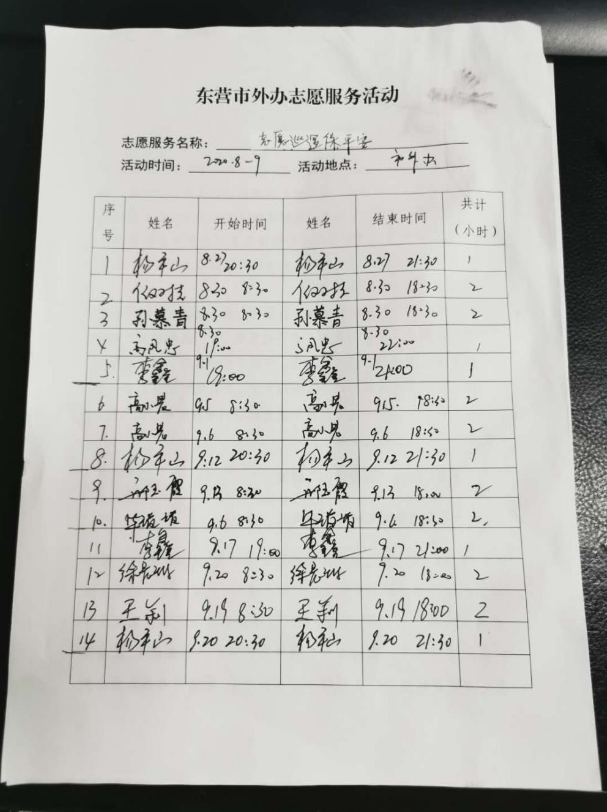 东营市外办志愿服务活动
志愿服务名称： 志愿巡逻保平安
活动时间： 2020.8-9 活动地点： 市外办
序号 姓名 开始时间 姓名 结束时间 共计（小时）
1 杨军山 8.27 20:30 杨军山 8.27 21:30 1
2 8.30 8:30 8.30 18:30 2
3 孙慕青 8.30 8:30 孙慕青 8.30 18:30 2
4 高凤忠 8.30 19:00 高凤忠 8.30 22:00 1
5. 李鑫 9.1 19:00 李鑫 9.1 21:00 1
6 高小岩 9.5 8:30 高小岩 9.5. 18:30 2
7. 高小岩 9.6 8:30 高小岩 9.6 18:30 2
8. 杨军山 9.12 20:30 杨军山 9.12 21:30 1
9. 9.13 8:30 9.13 18:00 2
10. 9.6 8:30 9.6 18:30 2.
11 李鑫 9.17 19:00 李鑫 9.17 21:00 1
12 9.20 8:30 9.20 18:00 2
13 王剑 9.19 8:30 王剑 9.19 18:00 2
14 杨军山 9.20 20:30 杨军山 9.20 21:30 1